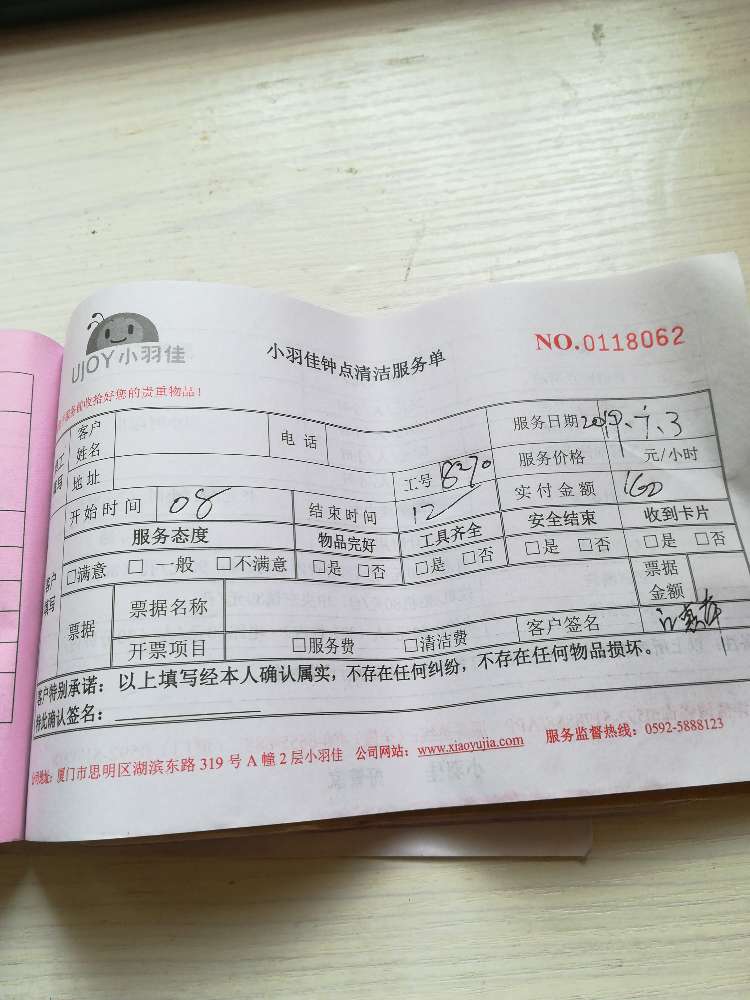 UJOY小羽佳
小羽佳钟点清洁服务单
NO.0118062
收拾好您的贵重物品!
客户姓名 电话 服务日期2019.7.3
地址 工号8270 服务价格 元/小时
开始时间 08 结束时间 12 实付金额 160
服务态度 物品完好 工具齐全 安全结束 收到卡片
□满意 □一般 □不满意 □是 □否 □是 □否 □是 □否 □是 □否
客户填写 票据 票据名称 票据金额
开票项目 □服务费 □清洁费 客户签名
客户特别承诺：以上填写经本人确认属实，不存在任何纠纷，不存在任何物品损坏。
特此确认签名：
公司地址：厦门市思明区湖滨东路 319 号 A 幢 2 层小羽佳 公司网站：www.xiaoyujia.com 服务监督热线：0592-5888123